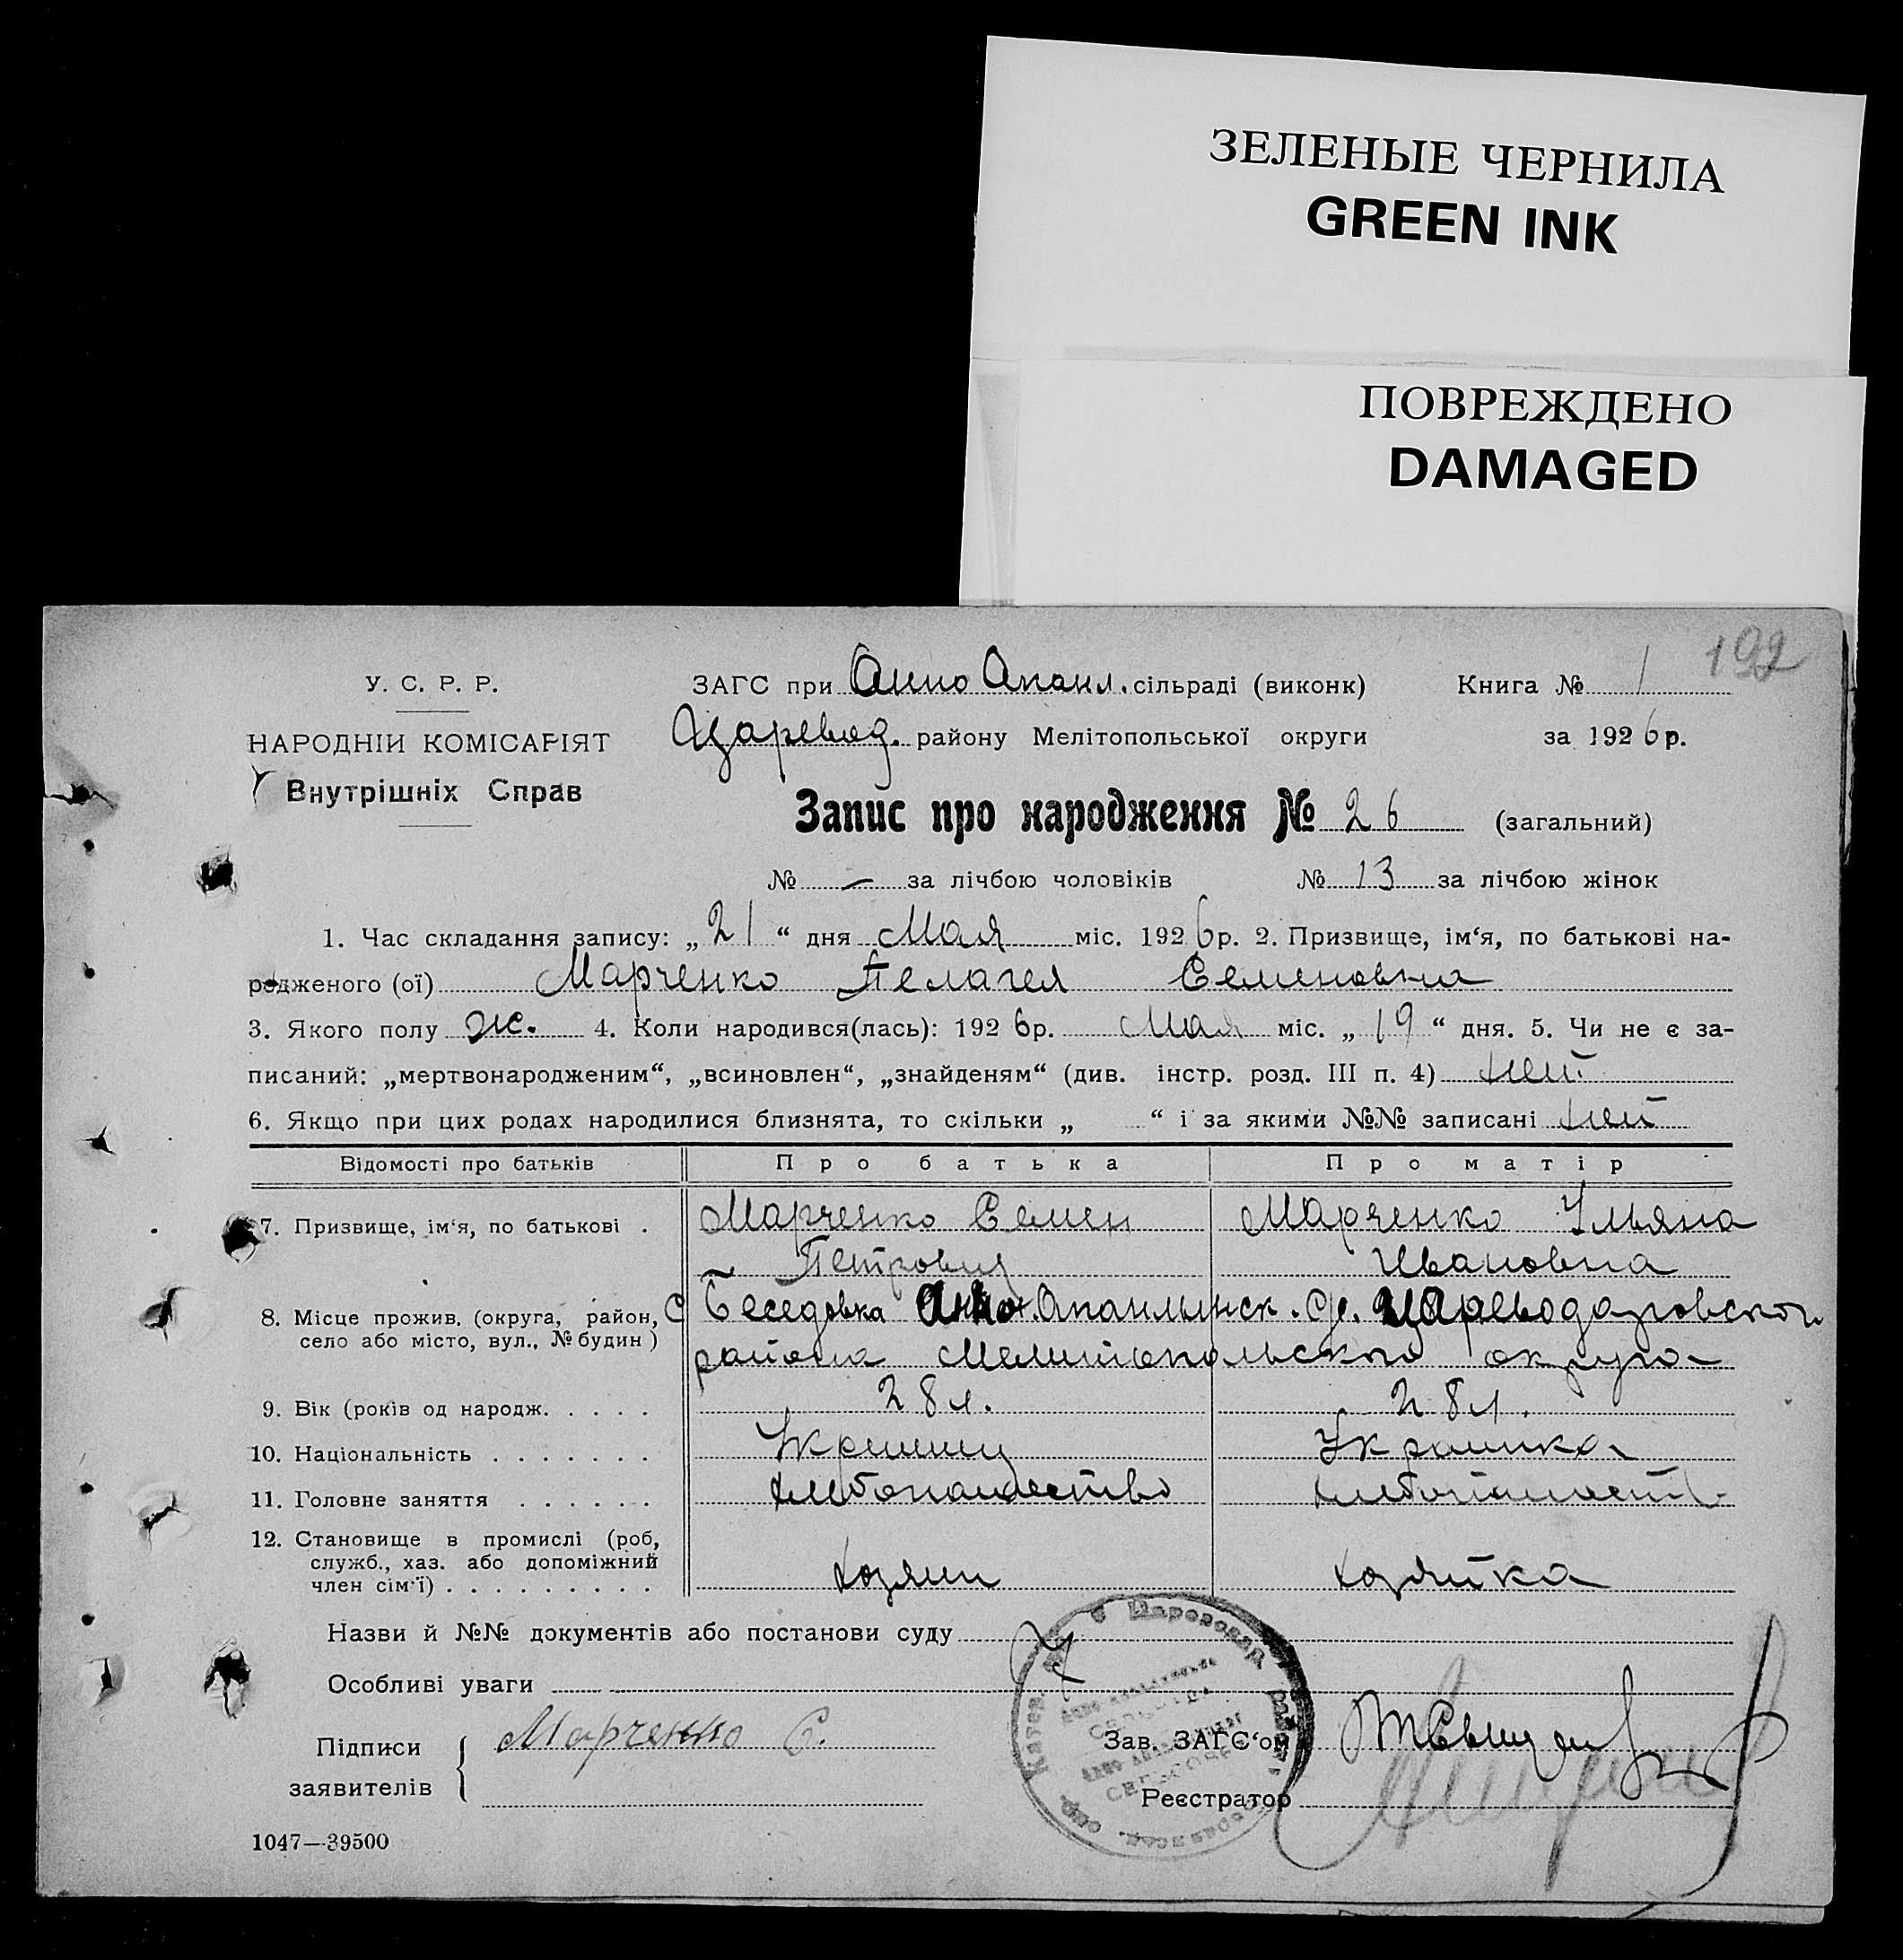 ЗЕЛЕНЫЕ ЧЕРНИЛА
GREEN INK
ПОВРЕЖДЕНО
DAMAGED
192
У. С. Р. Р.
ЗАГС при Анно Апанл. сільраді (виконк) Книга № 1
НАРОДНІЙ КОМІСАРІЯТ
Царевод. району Мелітопольської округи за 1926 р.
Внутрішніх Справ
Запис про народження № 26 (загальний)
№ — за лічбою чоловіків № 13 за лічбою жінок
1. Час складання запису: „21“ дня Мая міс. 1926 р. 2. Призвище, ім‘я, по батькові на-
родженого (ої) Марченко Пелагея Семеновна
3. Якого полу ж. 4. Коли народився(лась): 1926 р. Мая міс. „19“ дня. 5. Чи не є за-
писаний: „мертвонародженим“, „всиновлен“, „знайденям“ (див. інстр. розд. III п. 4) нет
6. Якщо при цих родах народилися близнята, то скільки „ “ і за якими №№ записані нет
Відомості про батьків Про батька Про матір
7. Призвище, ім‘я, по батькові . Марченко Семен Марченко Ульяна
Петрович Ивановна
8. Місце прожив. (округа, район, село або місто, вул., № будин) С Беседовка Анно. Апанлынск. С/с. Цареводаровского
района Мелитопольского округа
9. Вік (років од народж. . . . . 28 л. 28 л.
10. Національність . . . . . . . Украинец Украинка
11. Головне заняття . . . . . . хлебопашество хлебопашеств
12. Становище в промислі (роб,
служб., хаз. або допоміжний
член сім‘ї) . . . . . . . . . хозяин хозяйка
Назви й №№ документів або постанови суду
Особливі уваги
Підписи
заявителів
Марченко С.
Зав. ЗАГС‘ом
Реєстратор
1047—39500